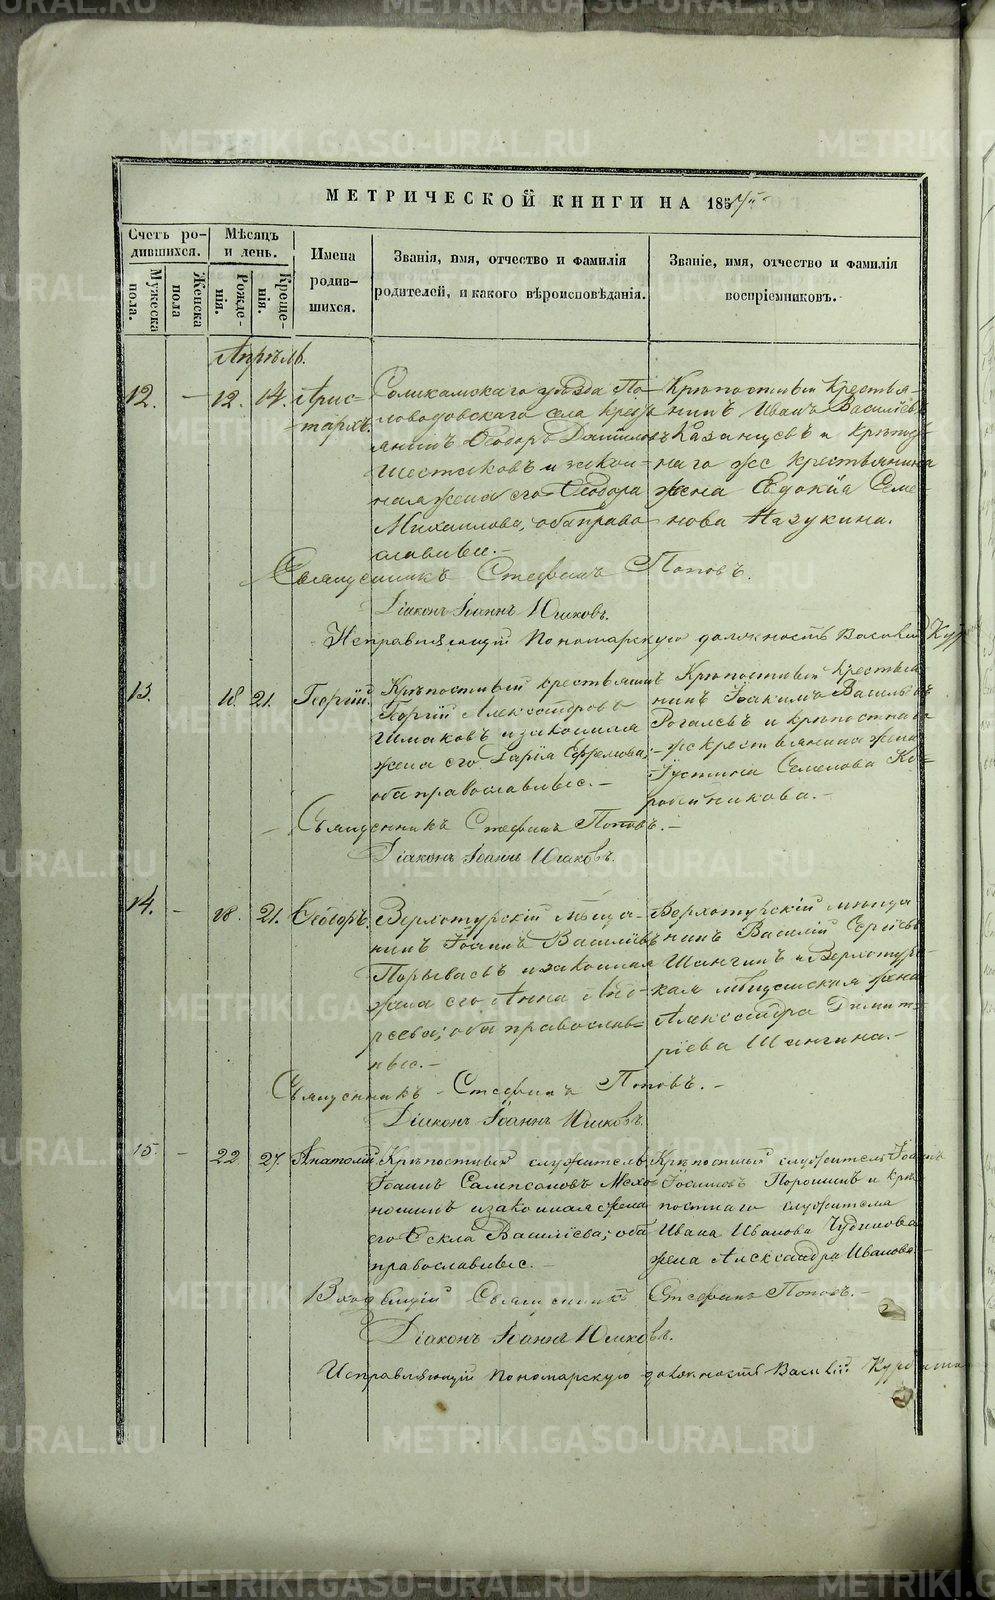 МЕТРИЧЕСКОЙ КНИГИ НА 185
Счетъ ро-
дившихся.
Мужеска пола.
Женска пола
Мѣсяцъ
и день.
Рожде-
нія.
Креще-
нія.
Имена
родив-
шихся.
Званія, имя, отчество и фамилія
родителей, и какого вѣроисповѣданія.
Званіе, имя, отчество и фамилія
воспріемниковъ.
Апрѣль.
12. – 12. 14. Арис-
тархъ.
Соликамскаго уѣзда По-
ловодовскаго села кресть-
янинъ Ѳеодоръ Даниловъ
Шестаковъ и закон-
ная жена его Ѳеодора
Михаилова, оба право-
славные.-
Крѣпостный крестья-
нинъ Иванъ Василіевъ
Казанцевъ и крѣпост-
наго же крестьянина
жена Евдокія Семе-
нова Мазукина.
Священникъ Стефанъ Поповъ.
Діаконъ Іоаннъ Юшковъ.
Исправляющій Пономарскую должность Василій
13. 18. 21. Георгій.
Крѣпостный крестьянинъ
Георгій Александровъ
Шмаковъ и законная
жена его Дарія Ефремова;
оба православные.-
Крѣпостный крестья-
нинъ Іоакимъ Васильевъ
Рогалевъ и крѣпостнаго
же крестьянина жена
Іустинія Семенова Ко-
Священникъ Стефанъ Поповъ.-
Діаконъ Іоаннъ Юшковъ.
14. – 18. 21. Ѳеодоръ.
Верхотурскій мѣща-
нинъ Іоаннъ Василіевъ
Порываевъ и законная
жена его Анна Анд-
реева; оба православ-
ные.-
Верхотурскій мѣща-
нинъ Василій Сергіевъ
Шангинъ и Верхотур-
ская мѣщанская жена
Александра Димит-
ріева Шангина.-
Священникъ Стефанъ Поповъ.-
Діаконъ Іоаннъ Юшковъ.
15. – 22 27. Анатолій
Крѣпостный служитель
Іоаннъ Сампсоновъ Мехо-
ношинъ и законная жена
его Ѳекла Василіева; оба
православные.-
Крѣпостный служитель Іоаннъ
Порошинъ и крѣ-
постнаго служителя
Ивана Иванова Чудинова
жена Александра Иванова
Священникъ Стефанъ Поповъ.-
Діаконъ Іоаннъ Юшковъ.
Исправляющій Пономарскую должность Василій
METRIKI.GASO-URAL.RU